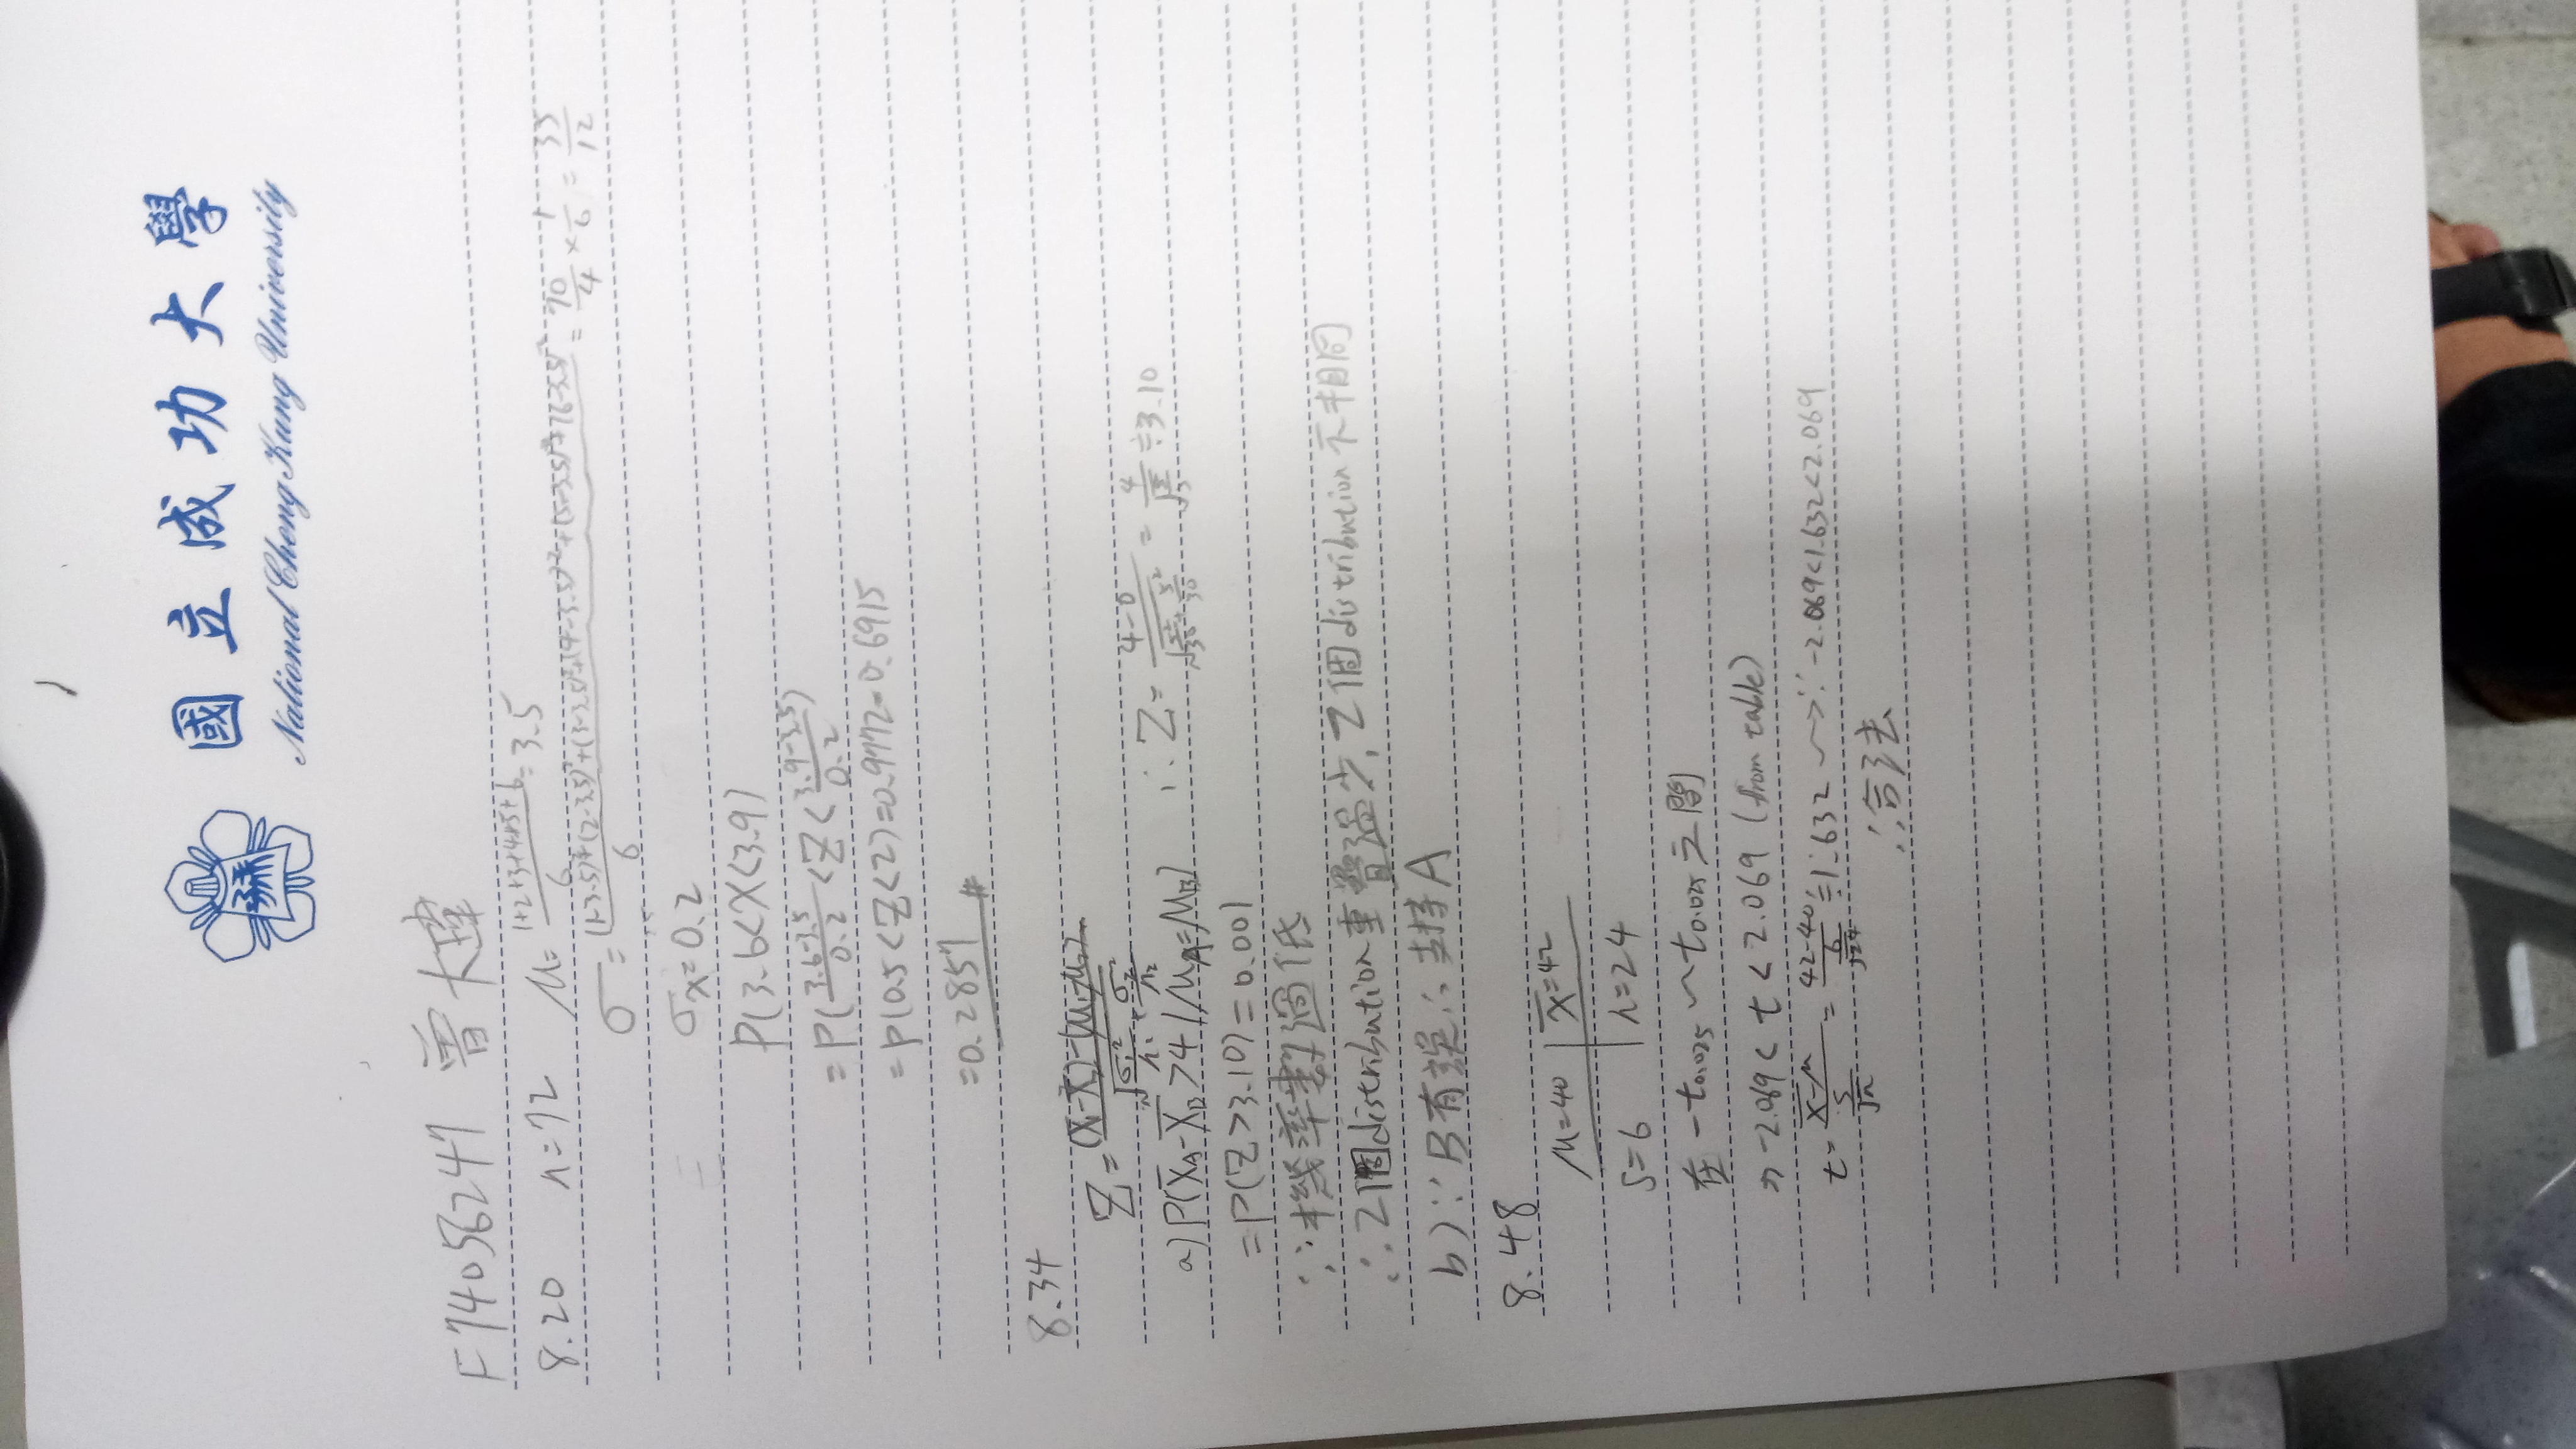 國立成功大學
National Cheng Kung University
F74056247 曾大瑋
8.20 n=72 μ=(1+2+3+4+5+6)/6=3.5
σ=((1-3.5)²+(2-3.5)²+(3-3.5)²+(4-3.5)²+(5-3.5)²+(6-3.5)²)/6=70/4×1/6=35/12
σx=0.2
P(3.6<X<3.9)
=P((3.6-3.5)/0.2<Z<(3.9-3.5)/0.2)
=P(0.5<Z<2)=0.9772-0.6915
=0.2857 #
8.34
Z=((x̄₁-x̄₂)-(μ₁-μ₂))/√(σ₁²/n₁+σ₂²/n₂)
a) P(X̄A-X̄B>4|μA=μB) ∴Z=(4-0)/√(5²/30+5²/30)=4/√(5/3)≒3.10
=P(Z>3.10)=0.001
∵機率數過低
∴2個distribution重疊過少,2個distribution不相同
b)∵B有誤∴支持A
8.48
μ=40 | x̄=42
S=6 | n=24
在-t0.025~t0.025之間
⇒-2.069<t<2.069 (from table)
t=(x̄-μ)/(s/√n)=(42-40)/(6/√24)≒1.632 ~>∵-2.069<1.632<2.069
∴合法